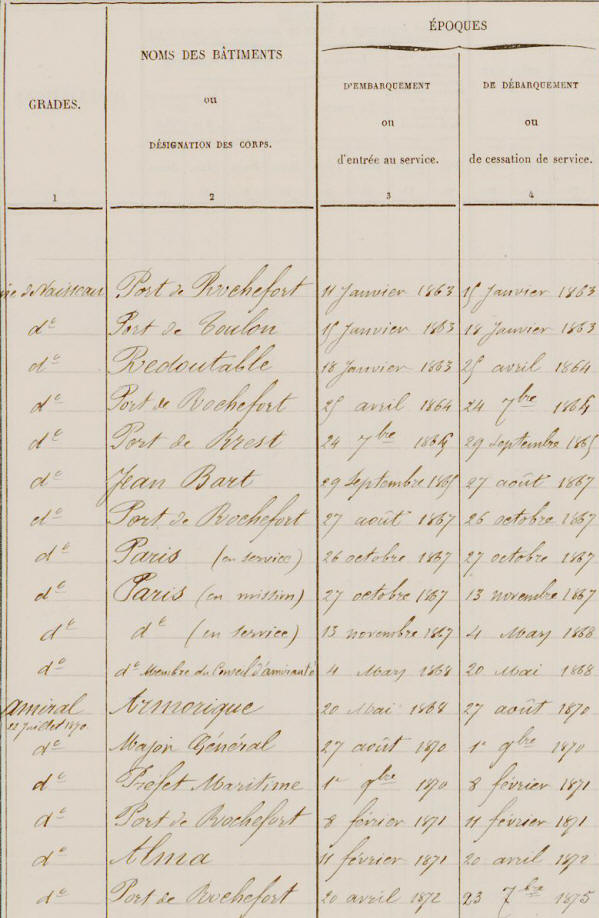 ÉPOQUES
GRADES.
NOMS DES BÂTIMENTS
ou
DÉSIGNATION DES CORPS.
D'EMBARQUEMENT
ou
d'entrée au service.
DE DÉBARQUEMENT
ou
de cessation de service.
1 2 3 4
de Vaisseau Port de Rochefort 11 Janvier 1863 15 Janvier 1863
do Port de Toulon 15 Janvier 1863 18 Janvier 1863
do Redoutable 18 Janvier 1863 25 avril 1864
do Port de Rochefort 25 avril 1864 24 7bre 1865
do Port de Brest 24 7bre 1865 29 Septembre 1865
do Jean Bart 29 Septembre 1865 27 août 1867
do Port de Rochefort 27 août 1867 26 octobre 1867
do Paris (en service) 26 octobre 1867 27 octobre 1867
do Paris (en mission) 27 octobre 1867 13 novembre 1867
do do (en service) 13 novembre 1867 4 Mars 1868
do do Membre du Conseil d'amirauté 4 Mars 1868 20 Mai 1868
amiral Armorique 20 Mai 1868 27 août 1870
22 Juillet 1870
do Major Général 27 août 1870 1er 9bre 1870
do Préfet Maritime 1er 9bre 1870 8 février 1871
do Port de Rochefort 8 février 1871 11 février 1871
do Alma 11 février 1871 20 avril 1872
do Port de Rochefort 20 avril 1872 23 7bre 1875